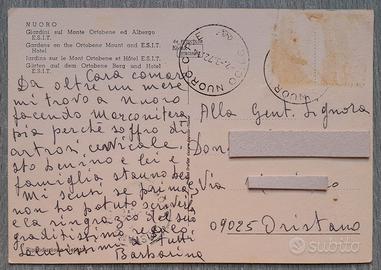 NUORO
Giardini sul Monte Ortobene ed Albergo
E.S.I.T.
Gardens on the Ortobene Mount and E.S.I.T.
Hotel
Jardins sur le Mont Ortobene et Hôtel E.S.I.T.
Gärten auf dem Berg Ortobene und Hotel
E.S.I.T.
NUORO
Cara comare
Da oltre un mese
mi trovo a Nuoro
facendo Marconitera
pia perché soffro di
artrosi cervicale.
sto benino e lei e
famiglia stanno bene
Mi scusi se prima
non ho potuto scriverle
e la ringrazio del suo
graditissimo regalo.
Salutissimi a tutti
Barbarina
Alla Gent. Signora
Via
09025 Oristano
subito